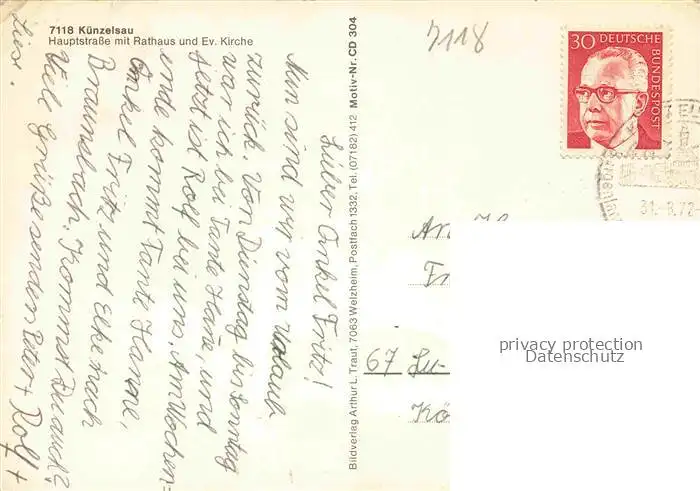 7118 Künzelsau
Hauptstraße mit Rathaus und Ev. Kirche
7118
30 DEUTSCHE
BUNDESPOST
31.-8.72-
Lieber Onkel Fritz!
Nun sind wir vom Urlaub
zurück. Von Dienstag bis Sonntag
war ich bei Tante Hane, und
jetzt ist Rolf bei uns. Am Wochen=
ende kommt Tante Hanne,
Onkel Fritz und Elke nach
Braunsbach. Kommst Du auch?
Viele Grüße senden Peter + Rolf +
Lies.
Bildverlag Arthur L. Traut, 7063 Welzheim, Postfach 1332, Tel. (07182) 412 Motiv-Nr. CD 304
An
Fr
67 Lu-
Kö
privacy protection
Datenschutz